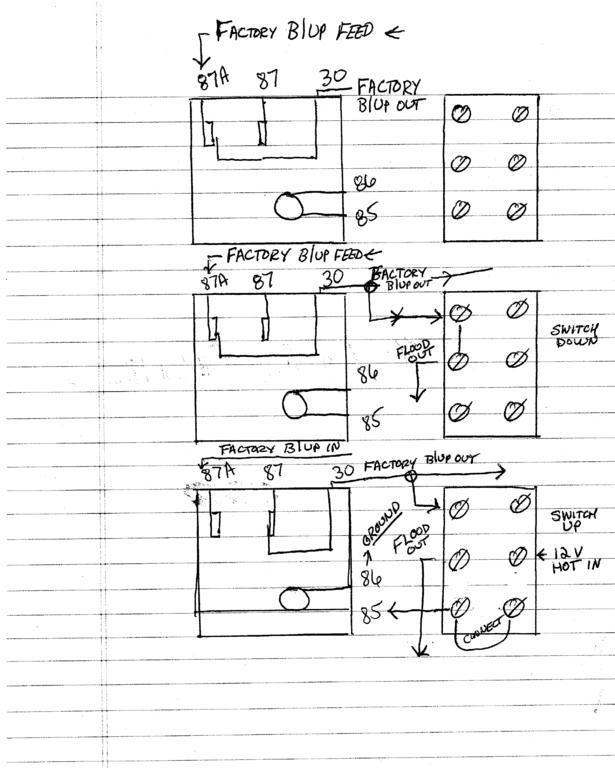 FACTORY B/UP FEED
87A 87 30
FACTORY
B/UP OUT
86
85
FACTORY B/UP FEED
87A 87 30
FACTORY
B/UP OUT
SWITCH
DOWN
FLOOD
OUT
86
85
FACTORY B/UP IN
87A 87 30 FACTORY B/UP OUT
GROUND
FLOOD
OUT
SWITCH
UP
12V
HOT IN
86
85
CONNECT